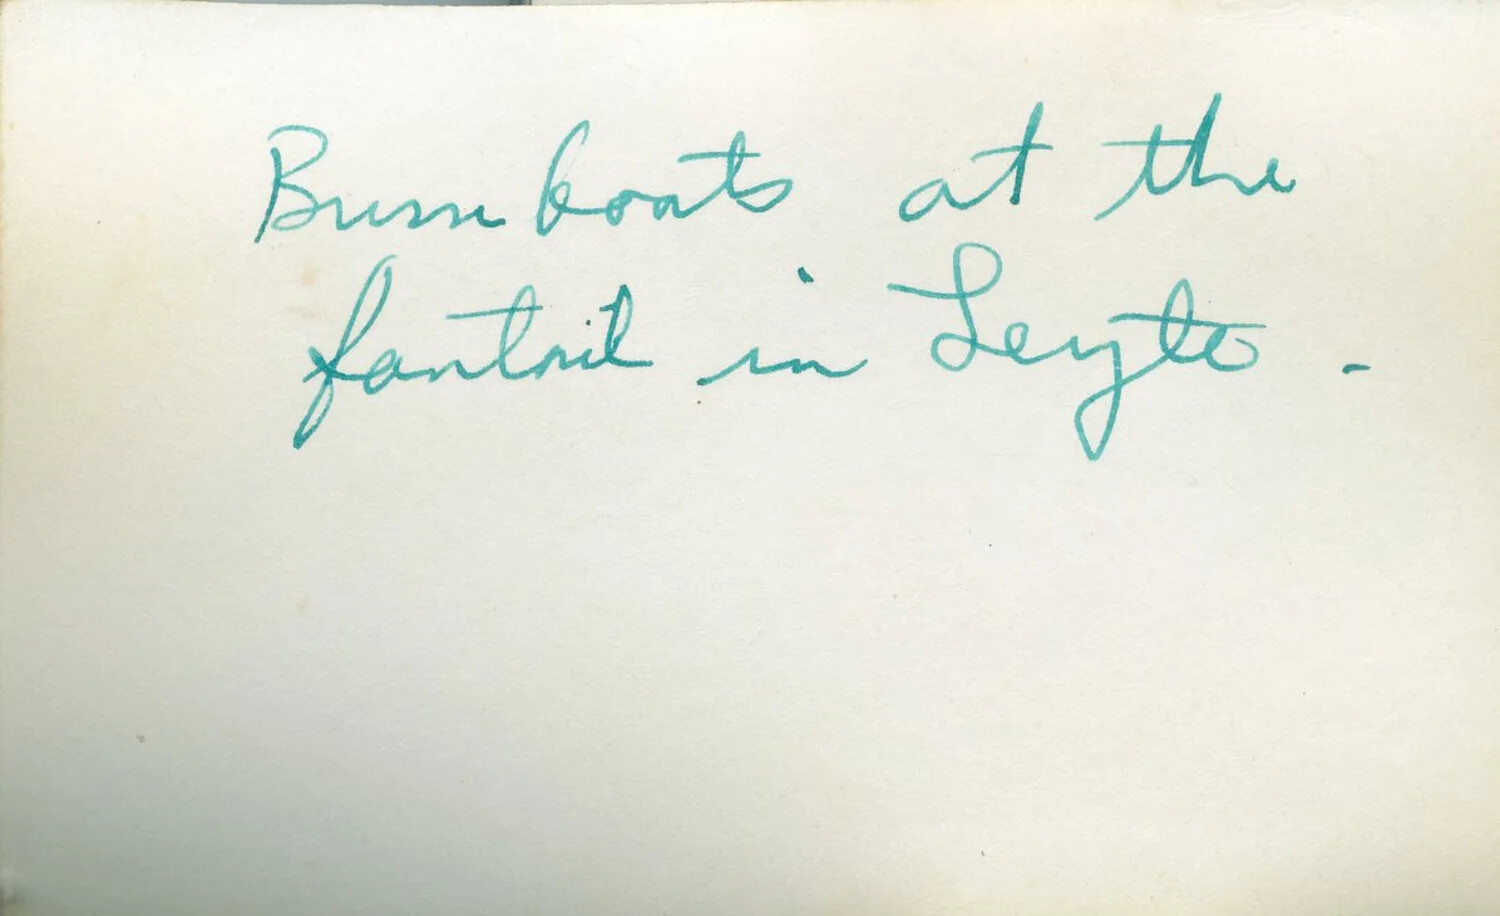 Bum boats at the
fantail in Leyte.